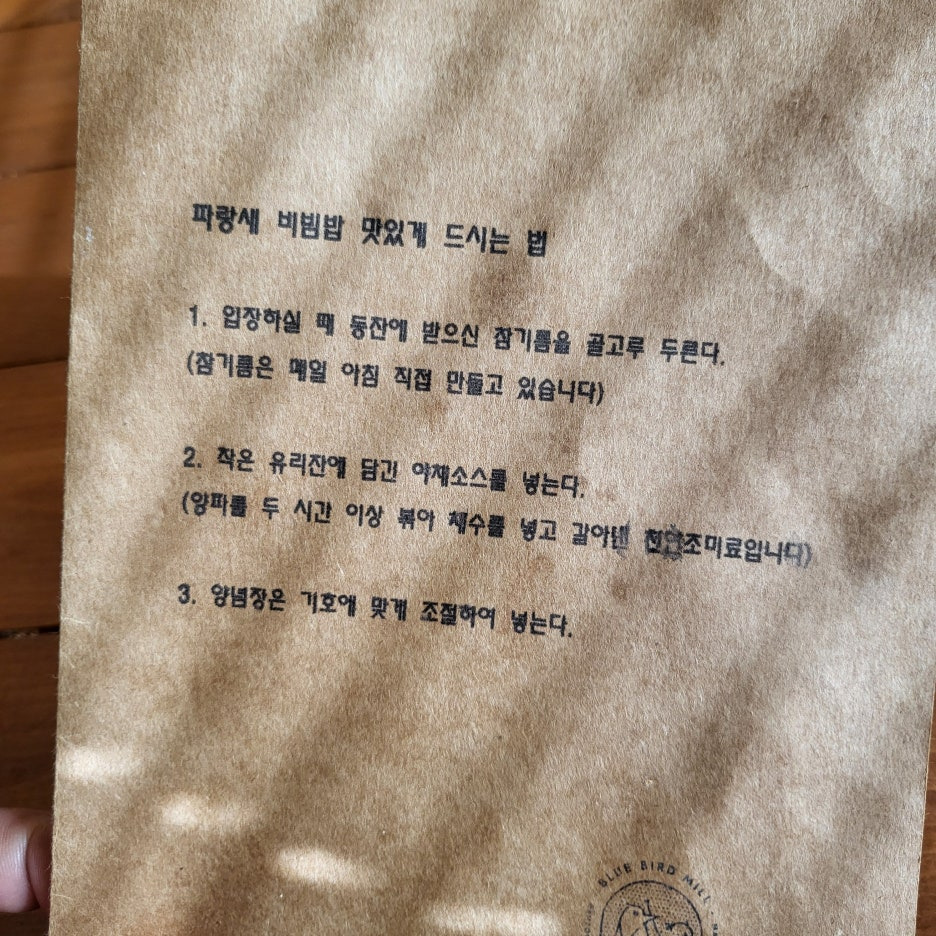 파랑새 비빔밥 맛있게 드시는 법
1. 입장하실 때 동잔에 받으신 참기름을 골고루 두른다.
(참기름은 매일 아침 직접 만들고 있습니다)
2. 작은 유리잔에 담긴 야채소스를 넣는다.
(양파를 두 시간 이상 볶아 채수를 넣고 갈아낸 조미료입니다)
3. 양념장은 기호에 맞게 조절하여 넣는다.
BLUE BIRD MILL